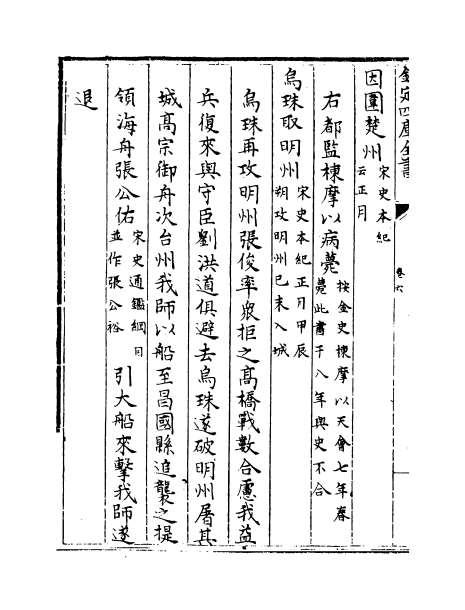 欽定四庫全書
卷六
因圍楚州宋史本紀云正月
右都監棟摩以病薨按金史棟摩以天會七年春薨此書于八年與史不合
烏珠取明州宋史本紀正月甲辰朔攻明州己未入城
烏珠再攻明州張俊率衆拒之髙橋戰數合慮我益
兵復來與守臣劉洪道俱避去烏珠遂破明州屠其
城高宗御舟次台州我師以船至昌國縣追襲之提
領海舟張公佑宋史通鑑綱目並作張公裕引大船來擊我師遂
退